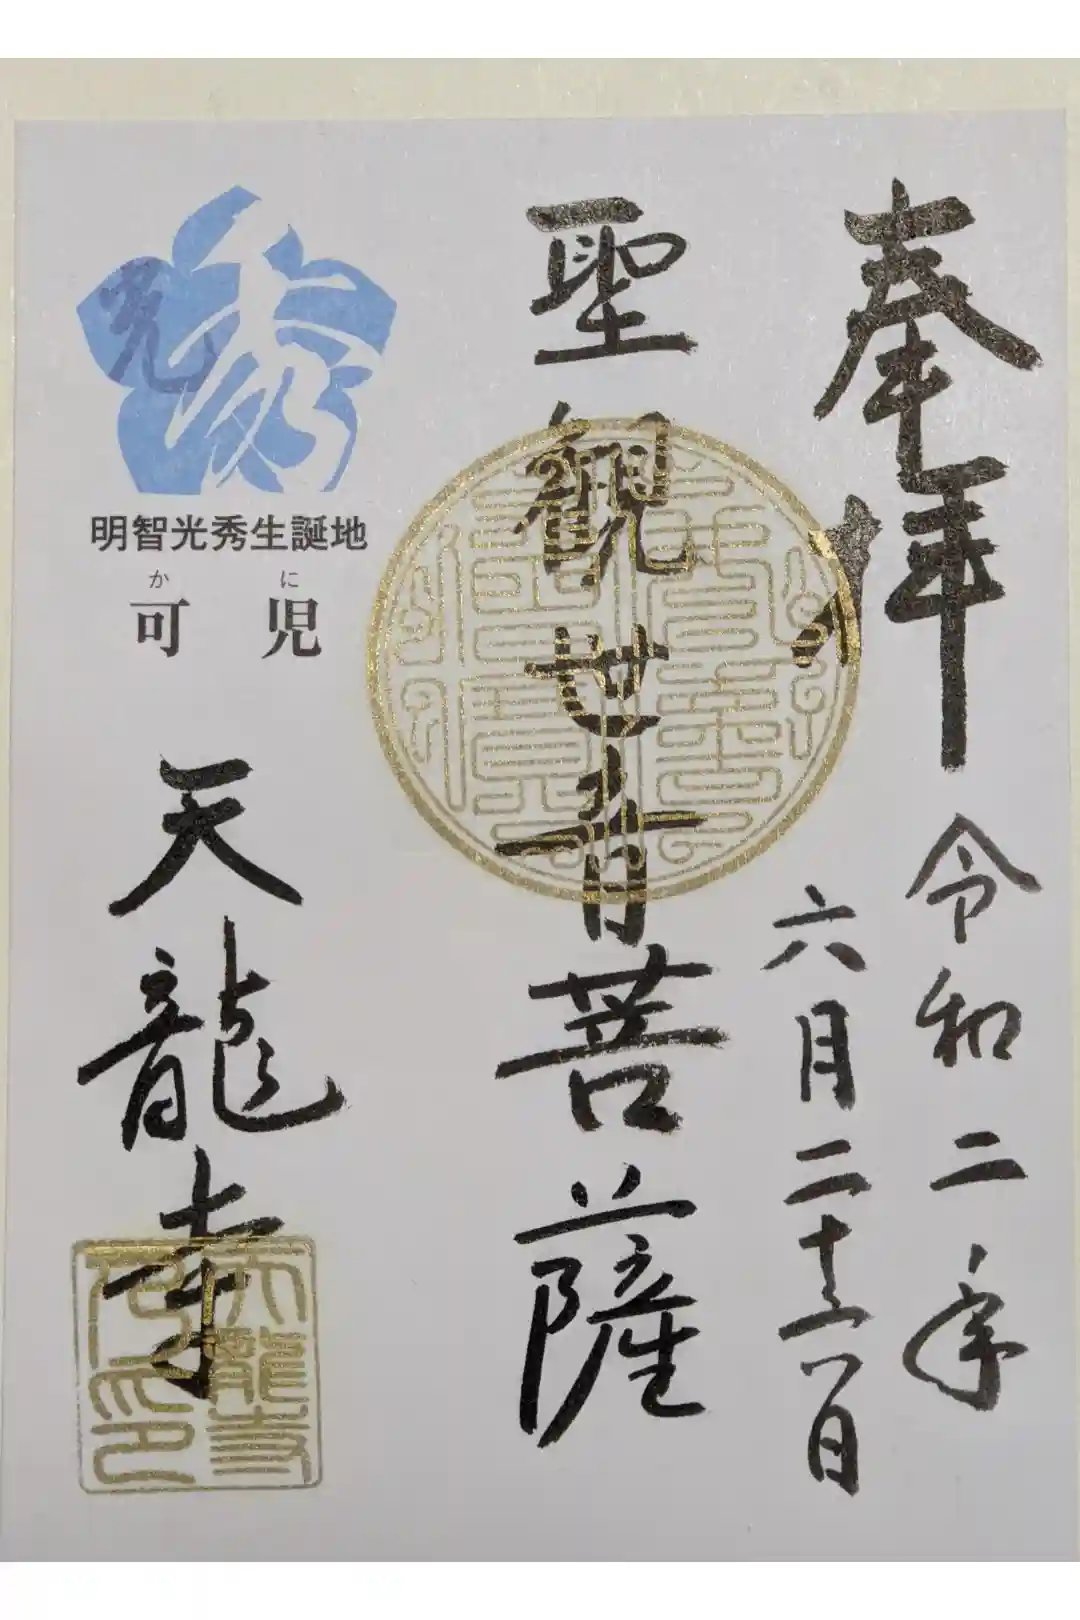 奉拝
令和二年
六月二十三日
聖観世音菩薩
光秀
明智光秀生誕地
かに
可児
天龍寺
天龍寺之印